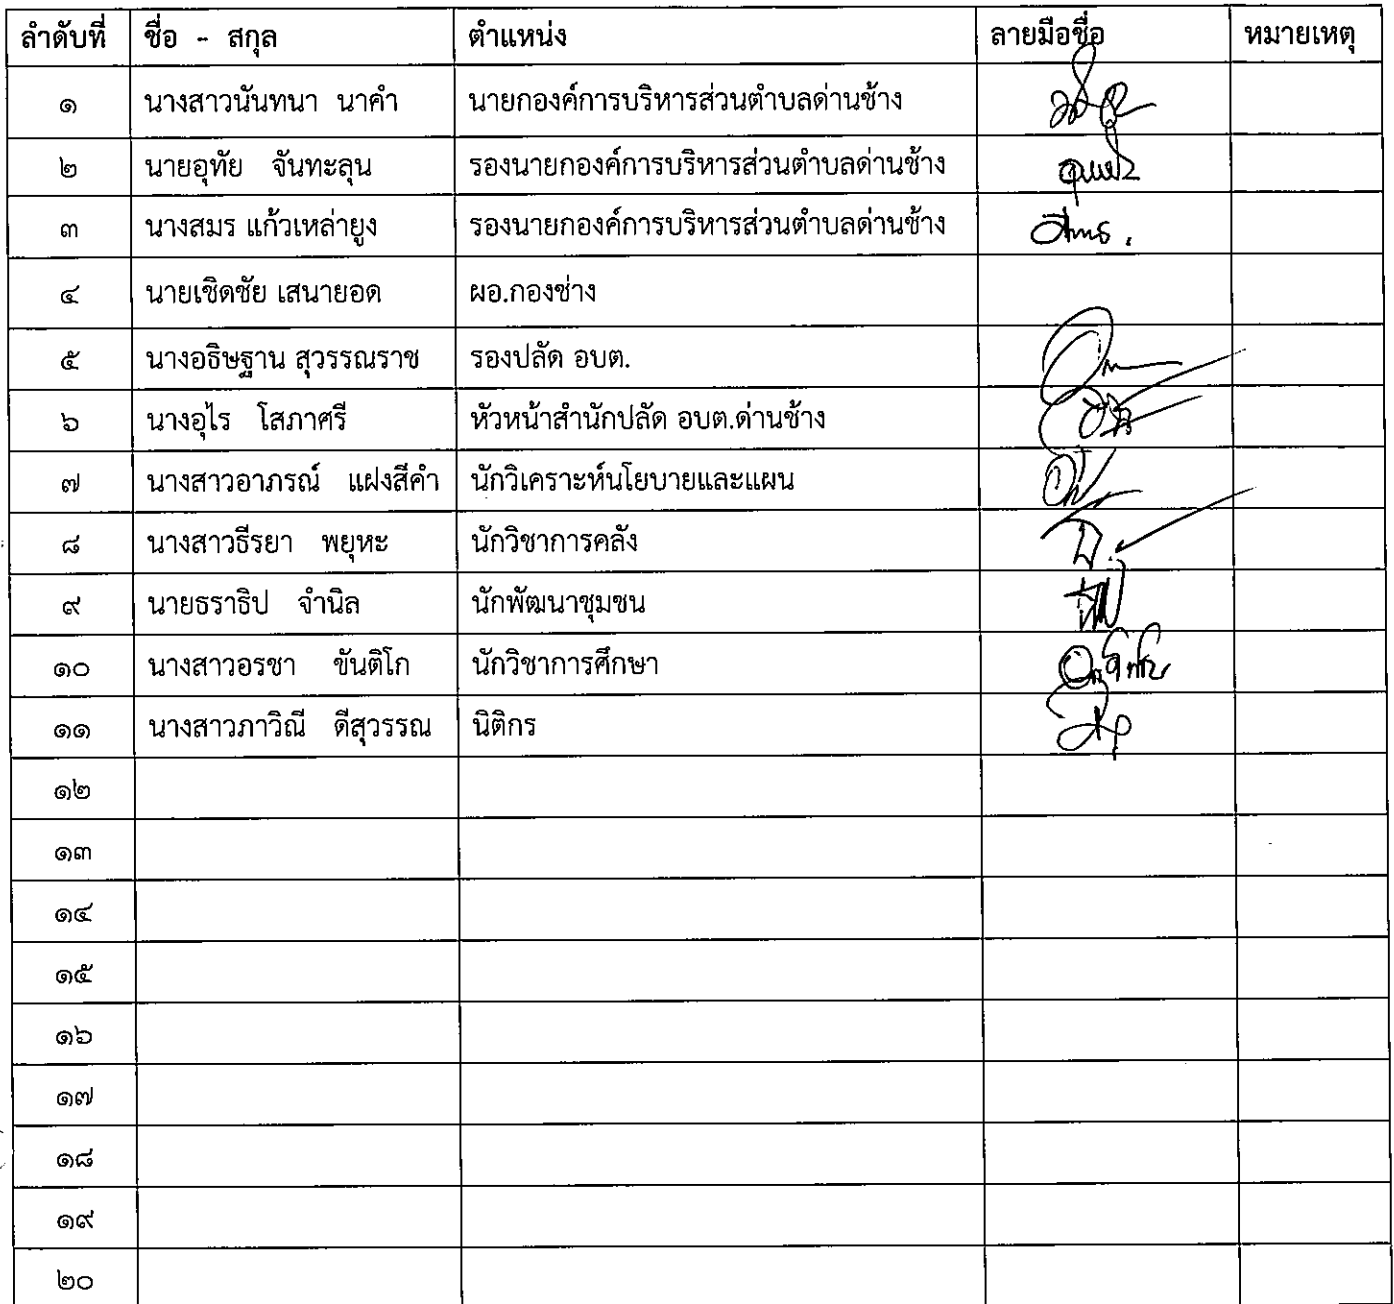 ลำดับที่ ชื่อ - สกุล ตำแหน่ง ลายมือชื่อ หมายเหตุ
๑ นางสาวนันทนา นาคำ นายกองค์การบริหารส่วนตำบลด่านช้าง
๒ นายอุทัย จันทะลุน รองนายกองค์การบริหารส่วนตำบลด่านช้าง
๓ นางสมร แก้วเหล่ายูง รองนายกองค์การบริหารส่วนตำบลด่านช้าง
๔ นายเชิดชัย เสนายอด ผอ.กองช่าง
๕ นางอธิษฐาน สุวรรณราช รองปลัด อบต.
๖ นางอุไร โสภาศรี หัวหน้าสำนักปลัด อบต.ด่านช้าง
๗ นางสาวอาภรณ์ แฝงสีคำ นักวิเคราะห์นโยบายและแผน
๘ นางสาวธีรยา พยุหะ นักวิชาการคลัง
๙ นายธราธิป จำนิล นักพัฒนาชุมชน
๑๐ นางสาวอรชา ขันติโก นักวิชาการศึกษา
๑๑ นางสาวภาวิณี ดีสุวรรณ นิติกร
๑๒
๑๓
๑๔
๑๕
๑๖
๑๗
๑๘
๑๙
๒๐